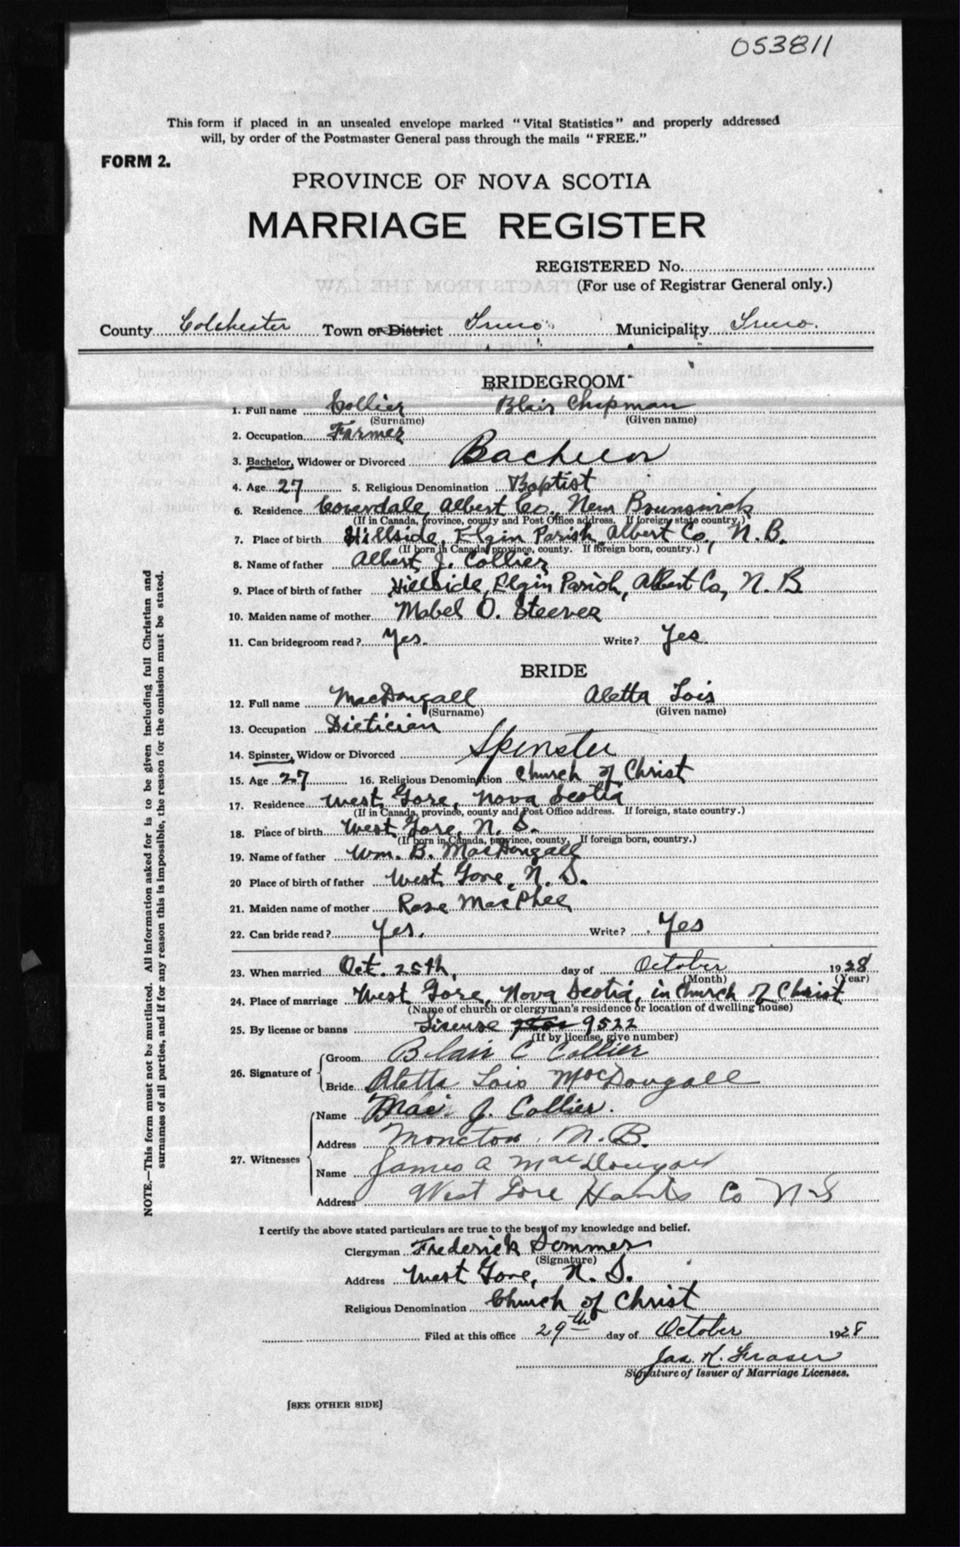 053811
This form if placed in an unsealed envelope marked "Vital Statistics" and properly addressed
will, by order of the Postmaster General pass through the mails "FREE."
FORM 2.
PROVINCE OF NOVA SCOTIA
MARRIAGE REGISTER
REGISTERED No.
(For use of Registrar General only.)
County Colchester Town or District Truro Municipality Truro.
BRIDEGROOM
1. Full name Collier Blair Chapman
(Surname) (Given name)
2. Occupation Farmer
3. Bachelor, Widower or Divorced Bachelor
4. Age 27 5. Religious Denomination Baptist
6. Residence Coverdale, Albert Co., New Brunswick
(If in Canada, province, county and Post Office address. If foreign state country.)
7. Place of birth Hillside, Elgin Parish, Albert Co., N.B.
(If born in Canada, province, county. If foreign born, country.)
8. Name of father Albert J. Collier
9. Place of birth of father Hillside, Elgin Parish, Albert Co, N.B
10. Maiden name of mother Mabel O. Steever
11. Can bridegroom read? Yes. Write? Yes
BRIDE
12. Full name MacDougall Aletta Lois
(Surname) (Given name)
13. Occupation Dietician
14. Spinster, Widow or Divorced Spinster
15. Age 27 16. Religious Denomination Church of Christ
17. Residence West Gore, Nova Scotia
(If in Canada, province, county and Post Office address. If foreign, state country.)
18. Place of birth West Gore, N. S.
(If born in Canada, province, county, If foreign born, country.)
19. Name of father Wm. B. MacDougall
20 Place of birth of father West Gore, N. S.
21. Maiden name of mother Rose MacPhee
22. Can bride read? Yes. Write? Yes
23. When married Oct. 25th, day of October 1928
(Month) (Year)
24. Place of marriage West Gore, Nova Scotia, in Church of Christ
(Name of church or clergyman's residence or location of dwelling house)
25. By license or banns License 9522
(If by license, give number)
26. Signature of Groom Blair C Collier
Bride Aletta Lois MacDougall
27. Witnesses Name Mae J. Collier.
Address Moncton, N.B.
Name James A MacDougall
Address West Gore Hants Co N-S
NOTE.—This form must not be mutilated. All information asked for is to be given including full Christian and
surnames of all parties, and if for any reason this is impossible, the reason for the omission must be stated.
I certify the above stated particulars are true to the best of my knowledge and belief.
Clergyman Frederick Sommer
(Signature)
Address West Gore, N. S.
Religious Denomination Church of Christ
Filed at this office 29th day of October 1928
Jas. H. Fraser
Signature of Issuer of Marriage Licenses.
[SEE OTHER SIDE]